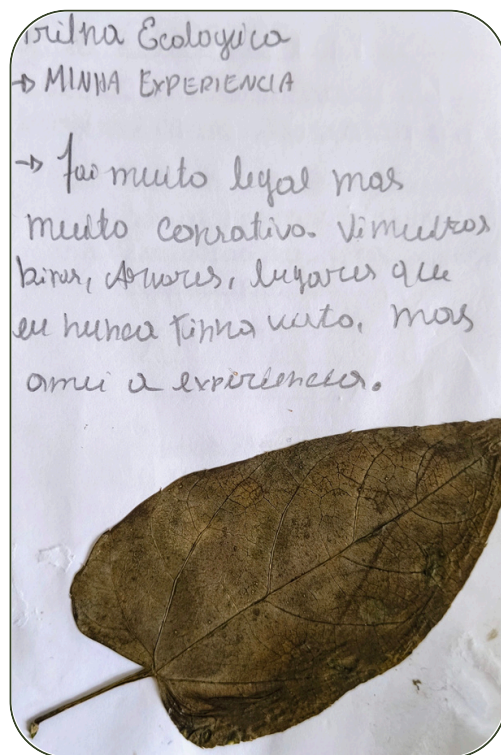 Trilha Ecologica
→ MINHA EXPERIENCIA
→ foi muito legal mas
muito consativo. Vi muitos
biros, Arvores, lugares que
eu nunca tinha visto, mas
amei a experiencia.